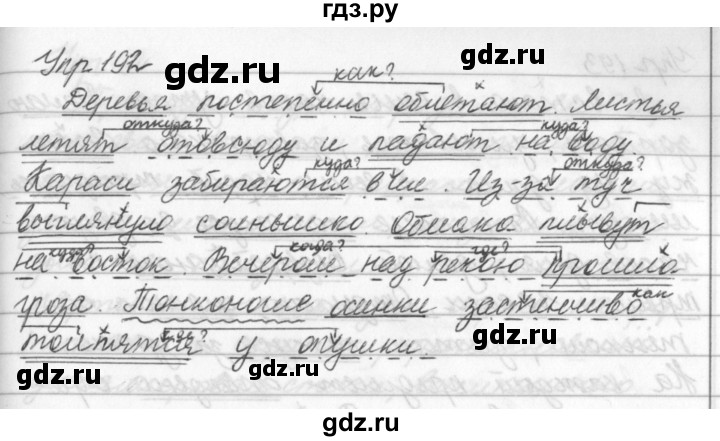 гдз.ру
Упр 192
gdz.ru
gdz.ru
как?
Деревья постепенно облетают. Листья
откуда?
куда?
летят отовсюду и падают на саду.
куда?
откуда?
Караси забираются в ил. Из-за туч
выглянуло солнышко. Облака плывут
куда?
когда?
где?
на восток. Вечером над рекою прошла
гроза. Тонконогие осинки застенчиво
как
gdz.ru
где?
толпятся у опушки.
gdz.ru
gdz.ru
gdz.ru